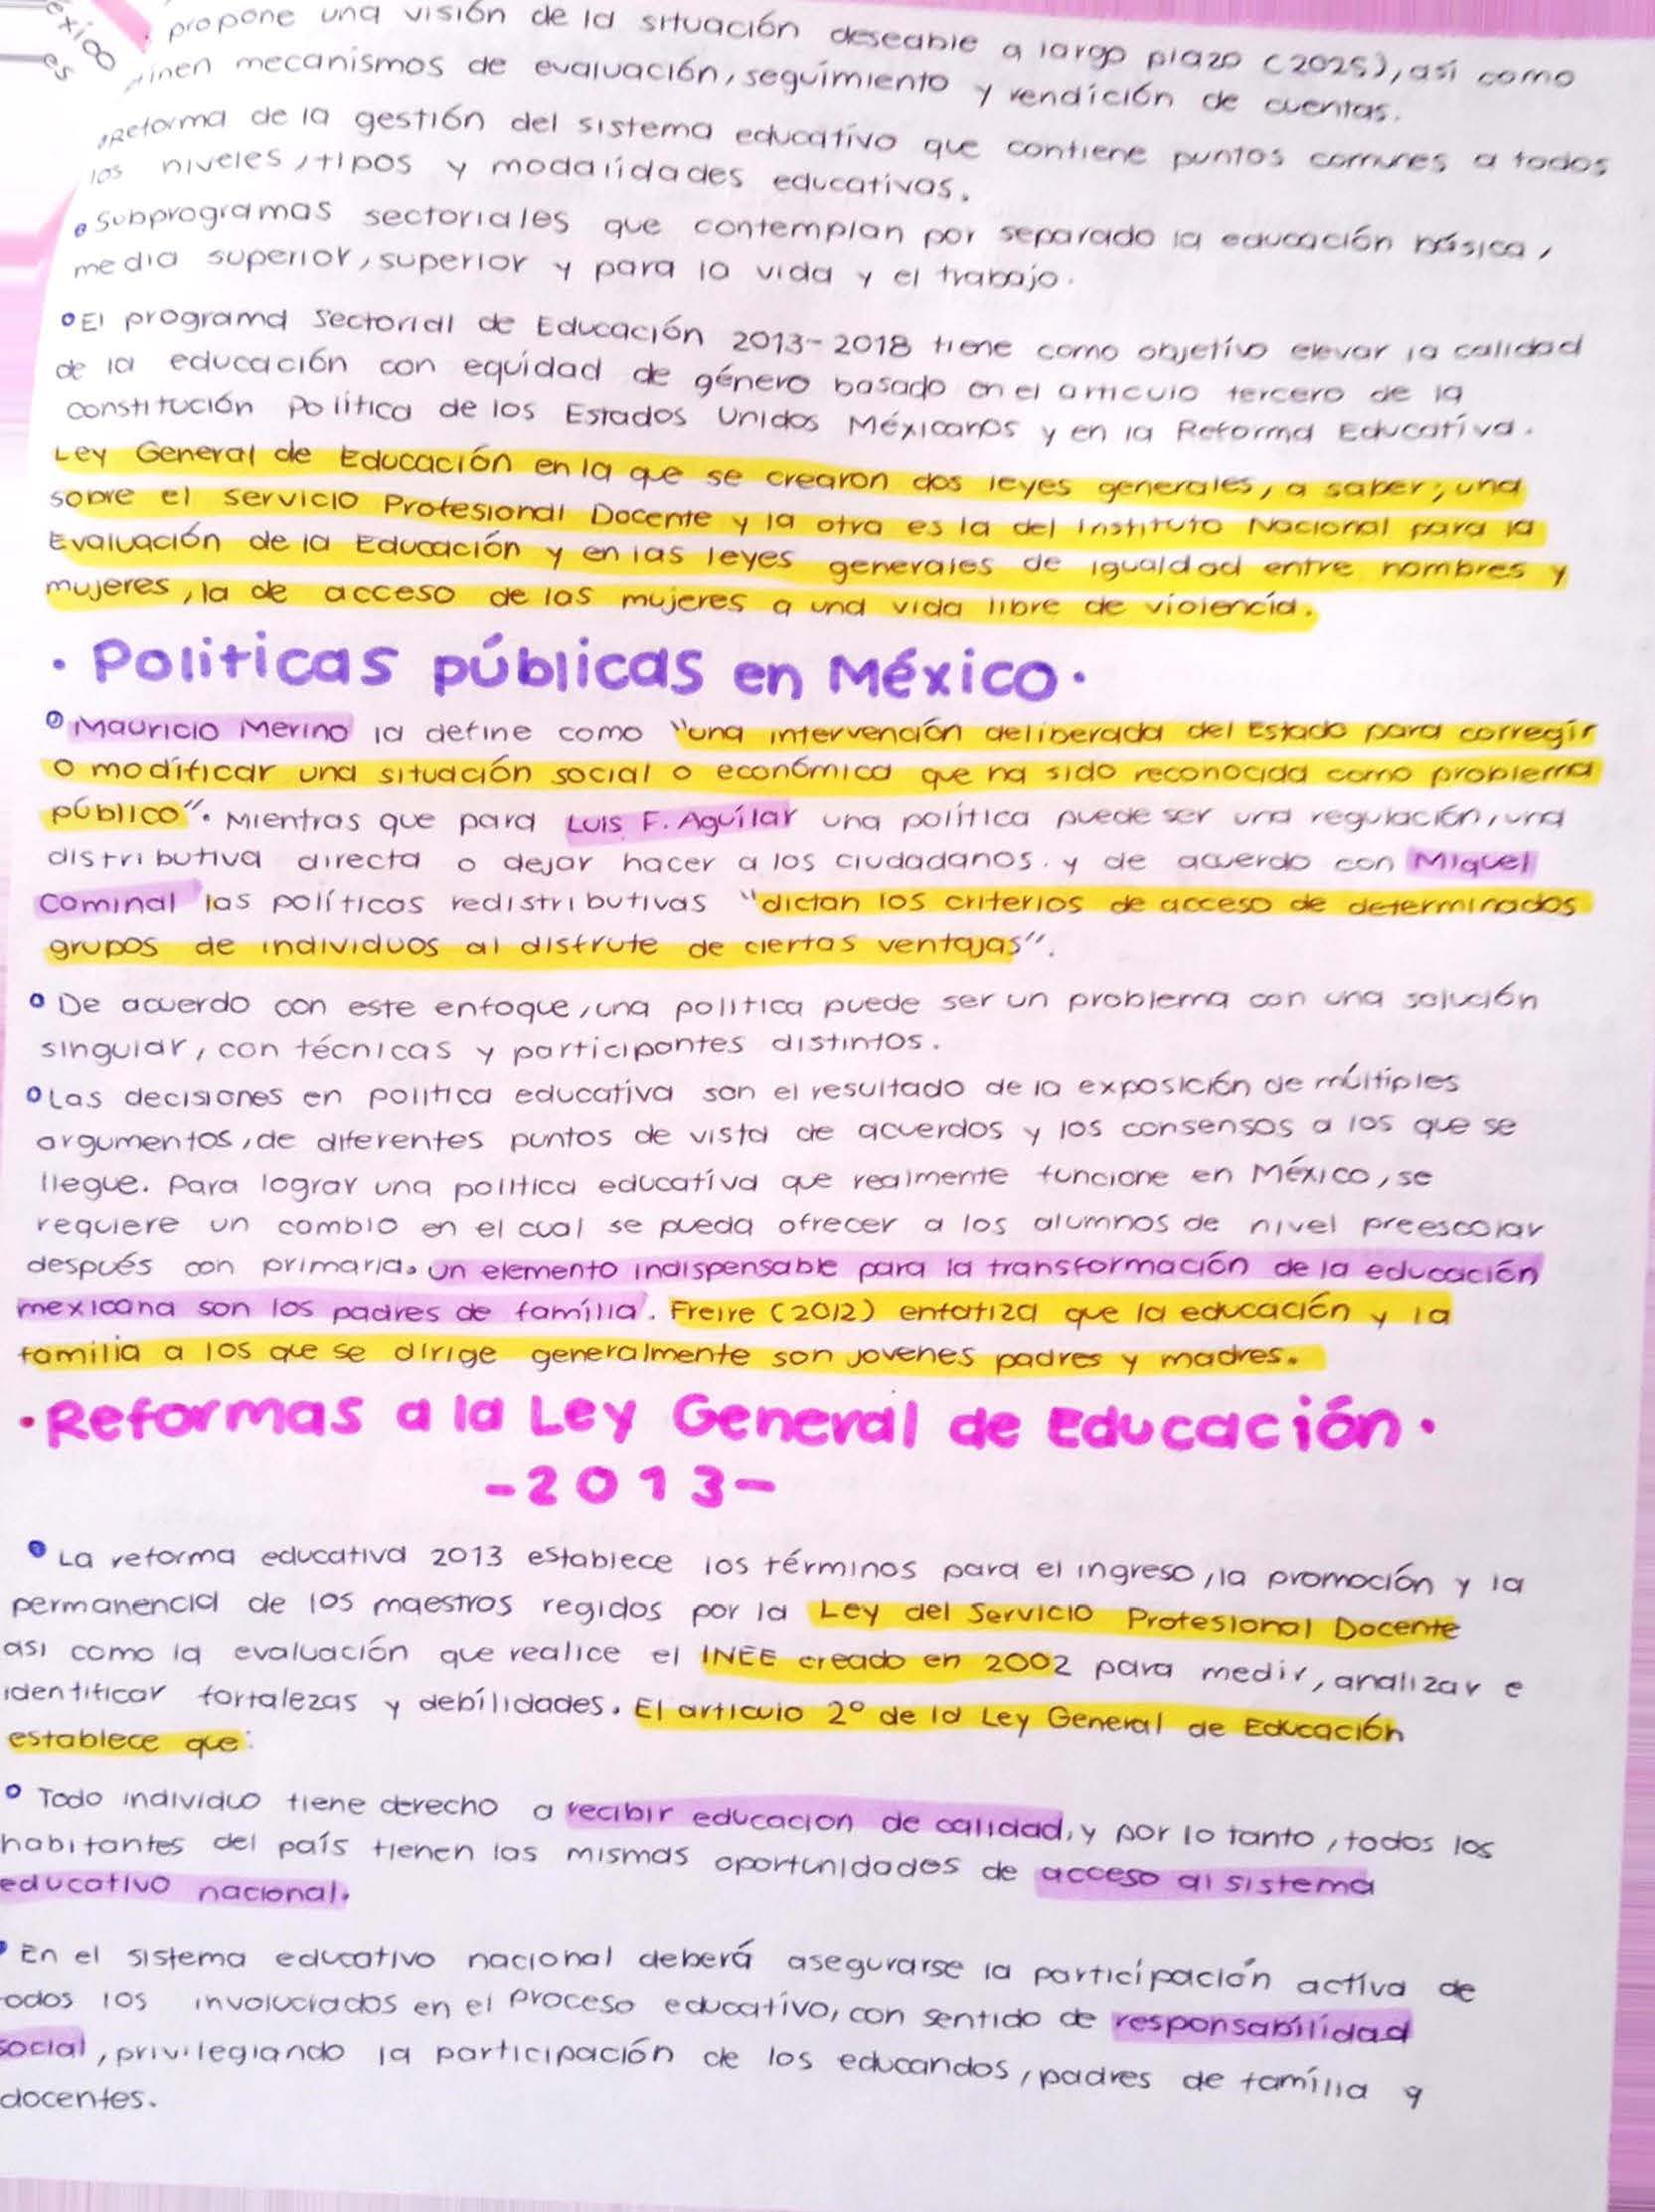 propone una visión de la situación deseable a largo plazo (2025), así como
mecanismos de evaluación, seguimiento y rendición de cuentas.
Reforma de la gestión del sistema educativo que contiene puntos comunes a todos
los niveles, tipos y modalidades educativas.
• Subprogramas sectoriales que contemplan por separado la educación básica,
media superior, superior y para la vida y el trabajo.
• El programa Sectorial de Educación 2013-2018 tiene como objetivo elevar la calidad
de la educación con equidad de género basado en el articulo tercero de la
constitución Política de los Estados Unidos Méxicanos y en la Reforma Educativa.
Ley General de Educación en la que se crearon dos leyes generales, a saber; una
sobre el Servicio Profesional Docente y la otra es la del Instituto Nacional para la
Evaluación de la Educación y en las leyes generales de igualdad entre hombres y
mujeres, la de acceso de las mujeres a una vida libre de violencia.
· Politicas públicas en México ·
• Mauricio Merino la define como "una intervención deliberada del Estado para corregir
o modificar una situación social o económica que ha sido reconocida como problema
público". Mientras que para Luis F. Aguilar una política puede ser una regulación, una
distributiva directa o dejar hacer a los ciudadanos. y de acuerdo con Miquel
Cominal las políticas redistributivas "dictan los criterios de acceso de determinados
grupos de individuos al disfrute de ciertas ventajas".
• De acuerdo con este enfoque, una politica puede ser un problema con una solución
singular, con técnicas y participantes distintos.
• Las decisiones en politica educativa son el resultado de la exposición de múltiples
argumentos, de diferentes puntos de vista de acuerdos y los consensos a los que se
llegue. Para lograr una politica educativa que realmente funcione en México, se
requiere un cambio en el cual se pueda ofrecer a los alumnos de nivel preescolar
después con primaria. Un elemento indispensable para la transformación de la educación
mexicana son los padres de familia. Freire (2012) enfatiza que la educación y la
familia a los que se dirige generalmente son jovenes padres y madres.
· Reformas a la Ley General de Educación ·
-2013-
• La reforma educativa 2013 establece los términos para el ingreso, la promoción y la
permanencia de los maestros regidos por la Ley del Servicio Profesional Docente
asi como la evaluación que realice el INEE creado en 2002 para medir, analizar e
identificar fortalezas y debilidades. El articulo 2° de la Ley General de Educación
establece que:
• Todo individuo tiene derecho a recibir educacion de calidad, y por lo tanto, todos los
habitantes del país tienen las mismas oportunidades de acceso al sistema
educativo nacional.
• En el sistema educativo nacional deberá asegurarse la participación activa de
todos los involuciados en el proceso educativo, con sentido de responsabilidad
social, privilegiando la participación de los educandos, padres de familia y
docentes.